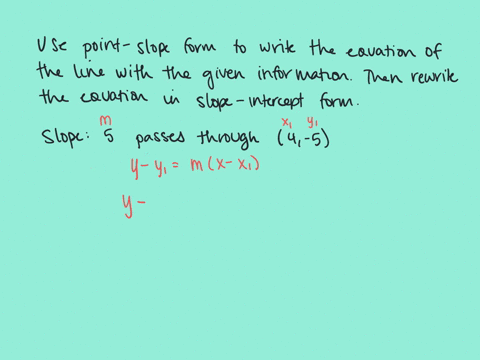 Use point-slope form to write the equation of
the line with the given information. Then rewrite
the equation in slope-intercept form.
m x₁ y₁
Slope: 5 passes through (4,-5)
y - y₁ = m(x - x₁)
y -